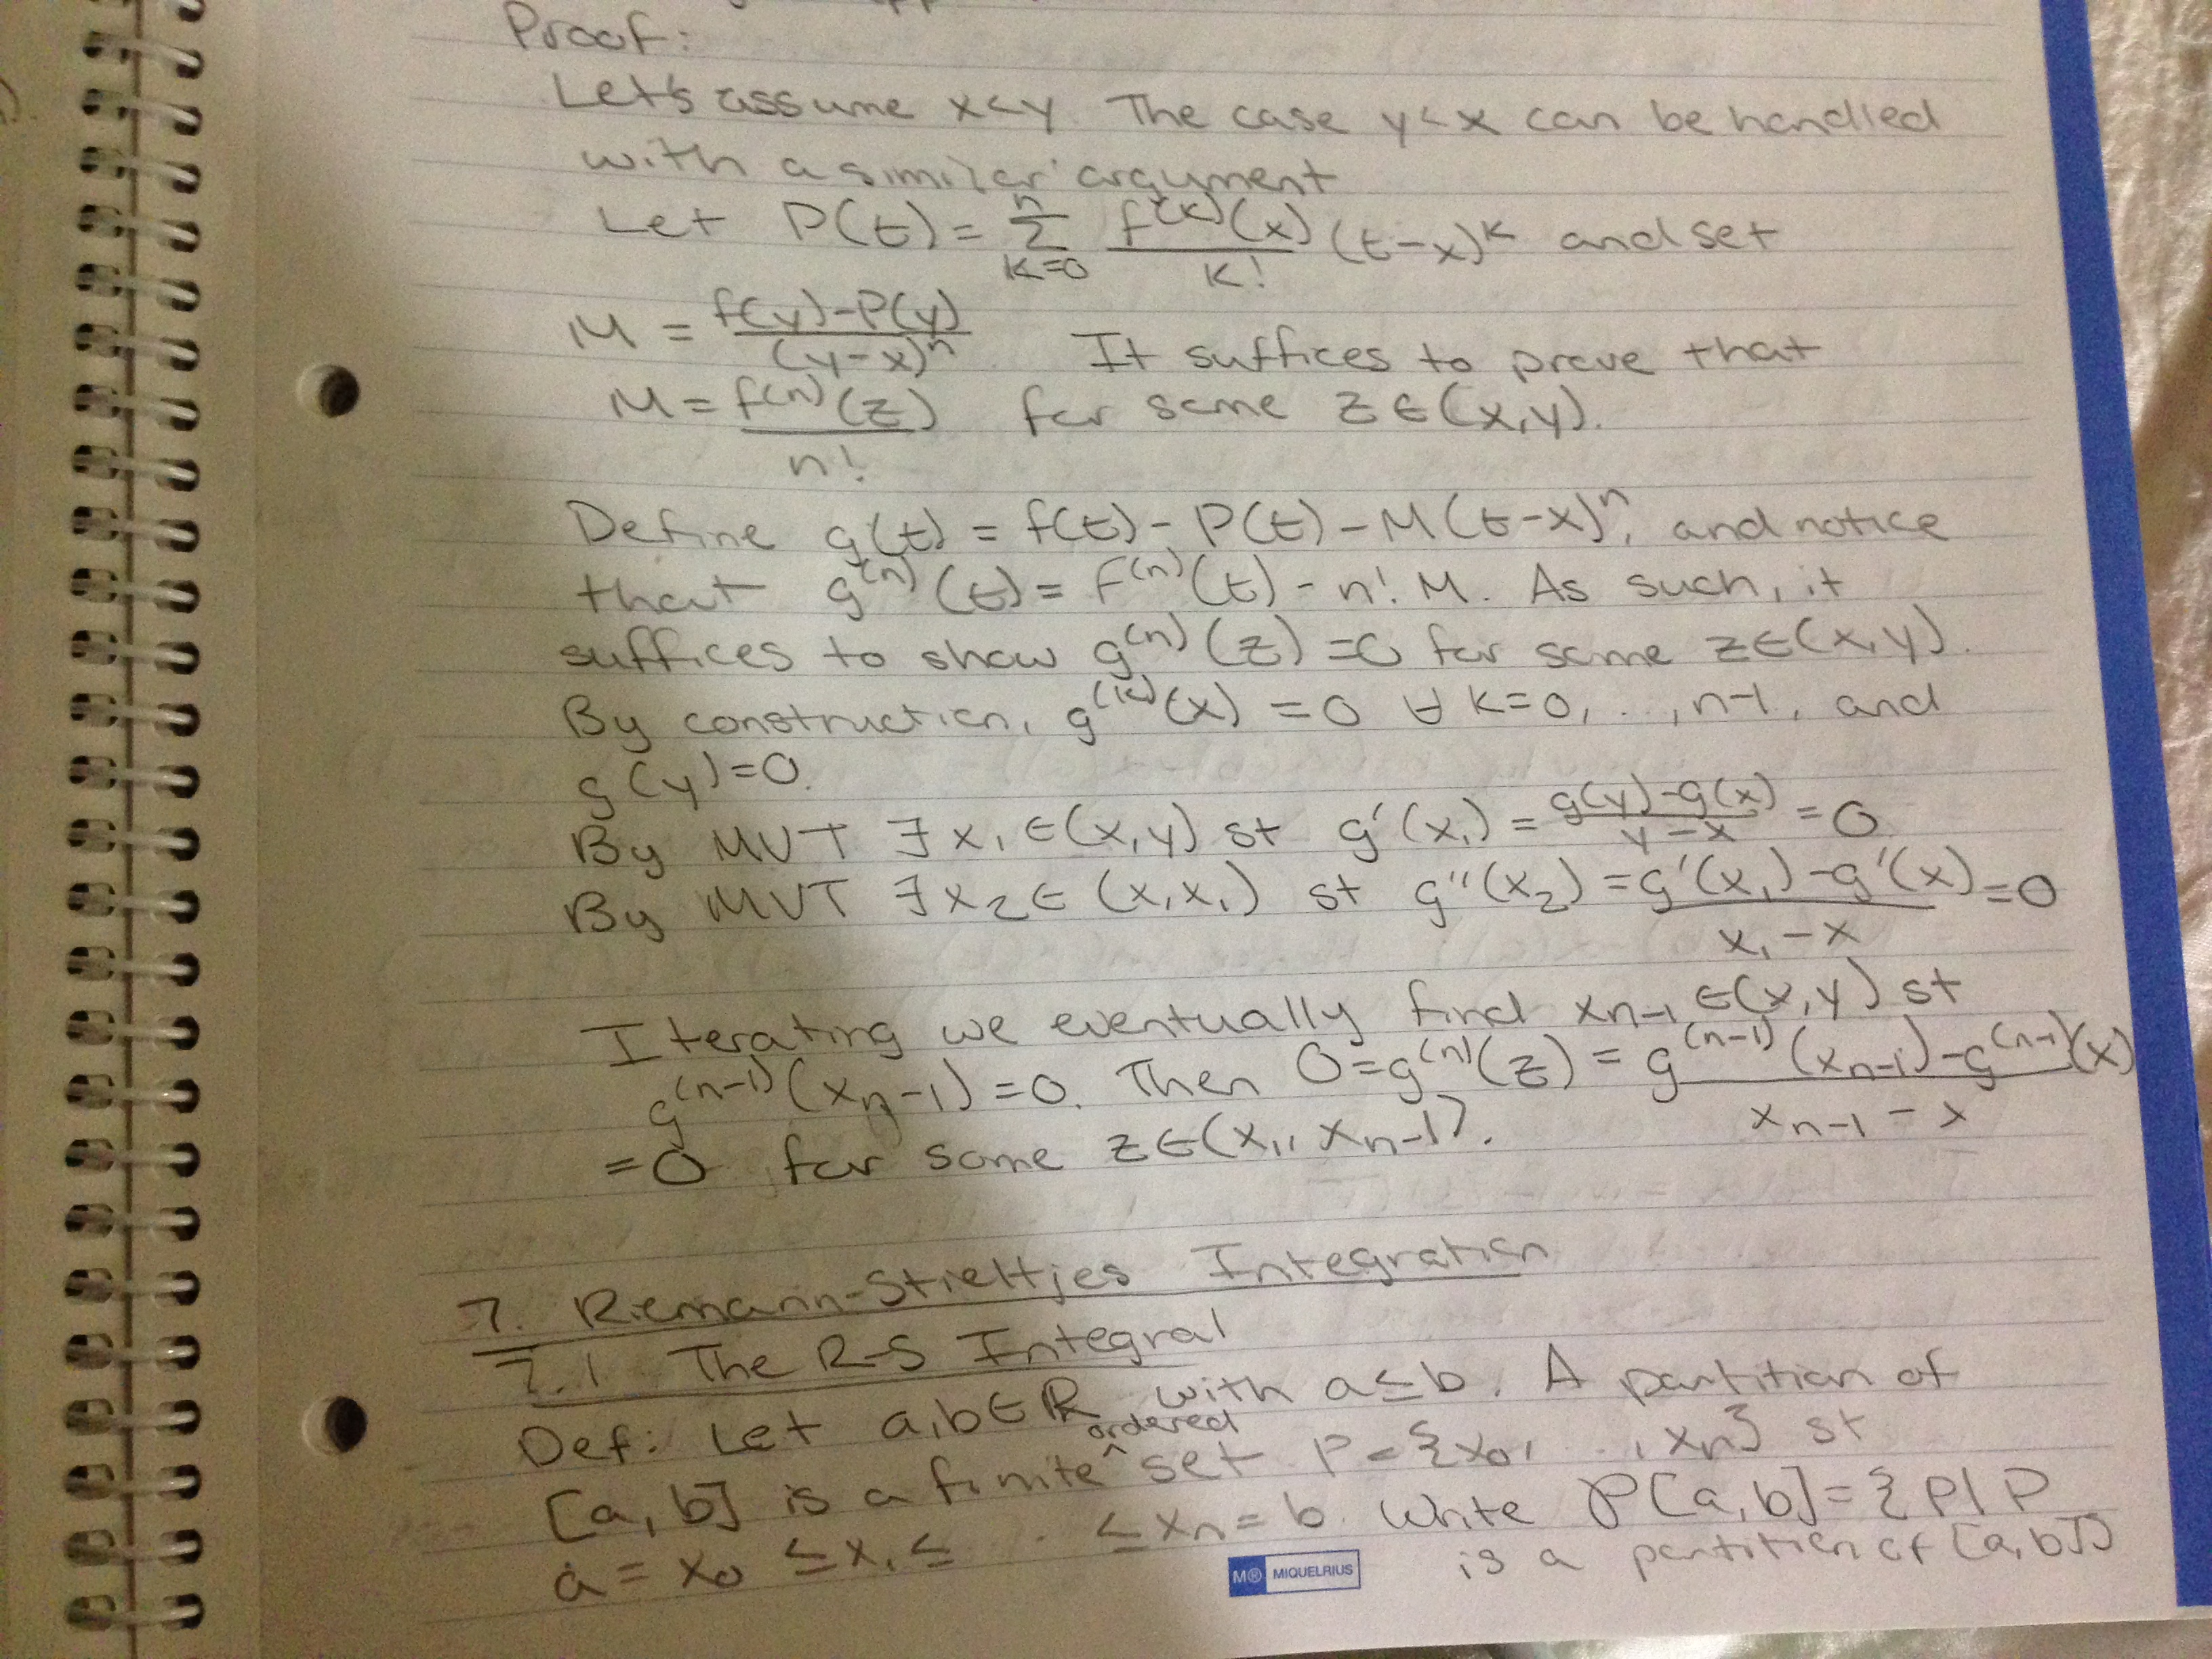 Proof:
Let's assume x<y. The case y<x can be handled
with a similar argument
Let P(t) = n Σ k=0 f^(k)(x)/k! (t-x)^k and set
M = f(y)-P(y)/(y-x)^n It suffices to prove that
M = f^(n)(z)/n! for some z∈(x,y).
Define g(t) = f(t) - P(t) - M(t-x)^n, and notice
that g^(n)(t) = f^(n)(t) - n! M. As such, it
suffices to show g^(n)(z) = 0 for some z∈(x,y).
By construction, g^(k)(x) = 0 ∀ k=0,..,n-1, and
g(y)=0.
By MVT ∃ x₁ ∈(x,y) st g'(x₁) = g(y)-g(x)/y-x = 0
By MVT ∃ x₂ ∈ (x,x₁) st g''(x₂) = g'(x₁)-g'(x)/x₁-x = 0
Iterating we eventually find xn-1 ∈(x,y) st
g^(n-1)(xn-1) = 0. Then 0 = g^(n)(z) = g^(n-1)(xn-1)-g^(n-1)(x)/xn-1 - x
= 0 for some z∈(x,, xn-1).
7. Riemann-Stieltjes Integration
7.1 The R-S Integral
Def: Let a,b∈ℝ with a≤b. A partition of
[a,b] is a finite ^ordered set P = {x₀, ..., xn} st
a = x₀ ≤ x₁ ≤ ... ≤ xn = b. Write P[a,b] = {P| P
is a partition of [a,b]}
M® MIQUELRIUS